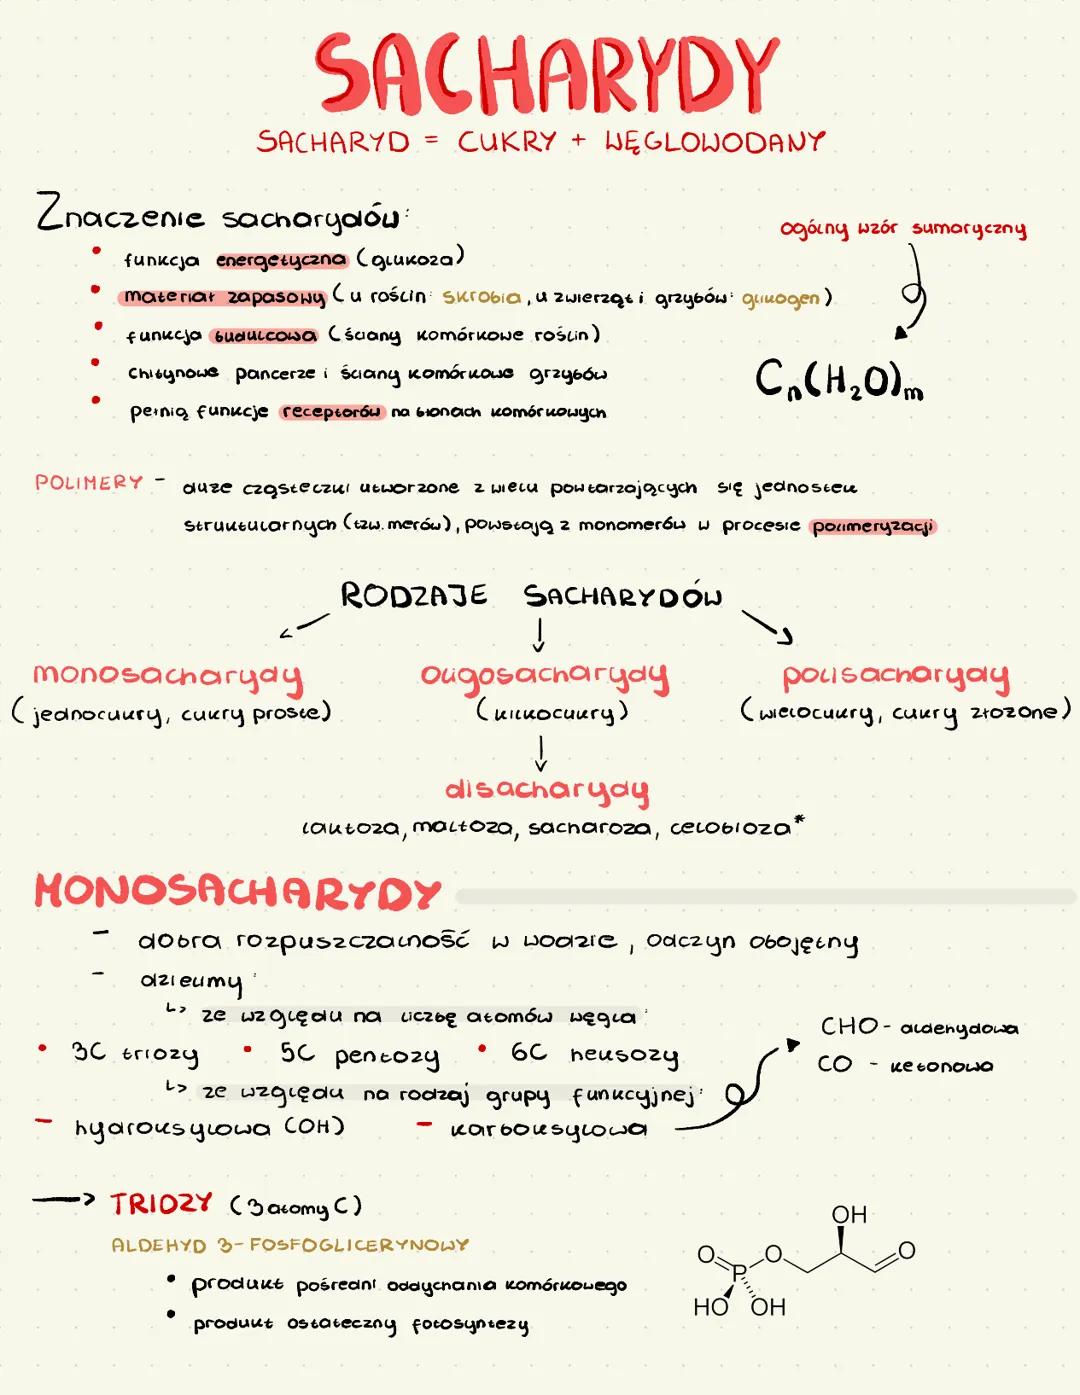 SACHARYDY
SACHARYD = CUKRY + WĘGLOWODANY
Znaczenie sacharydów:
• funkcja energetyczna (glukoza)
• materiał zapasowy (u roślin: skrobia, u zwierząt i grzybów: glikogen)
• funkcja budulcowa (ściany komórkowe roślin)
• chitynowe pancerze i ściany komórkowe grzybów
• pełnią funkcje receptorów na błonach komórkowych
ogólny wzór sumaryczny
Cₙ(H₂O)ₘ
POLIMERY - duże cząsteczki utworzone z wielu powtarzających się jednostek
strukturalnych (tzw. merów), powstają z monomerów w procesie polimeryzacji
RODZAJE SACHARYDÓW
monosacharydy oligosacharydy polisacharydy
(jednocukry, cukry proste) (kilkocukry) (wielocukry, cukry złożone)
disacharydy
laktoza, maltoza, sacharoza, celobioza*
MONOSACHARYDY
- dobra rozpuszczalność w wodzie, odczyn obojętny
- dzielimy:
↳ ze względu na liczbę atomów węgla:
• 3C triozy • 5C pentozy • 6C heksozy
↳ ze względu na rodzaj grupy funkcyjnej:
- hydroksylowa (OH) - karboksylowa
CHO - aldehydowa
CO - ketonowa
→ TRIOZY (3 atomy C)
ALDEHYD 3-FOSFOGLICERYNOWY
• produkt pośredni oddychania komórkowego
• produkt ostateczny fotosyntezy
OH
O O O
P
HO OH